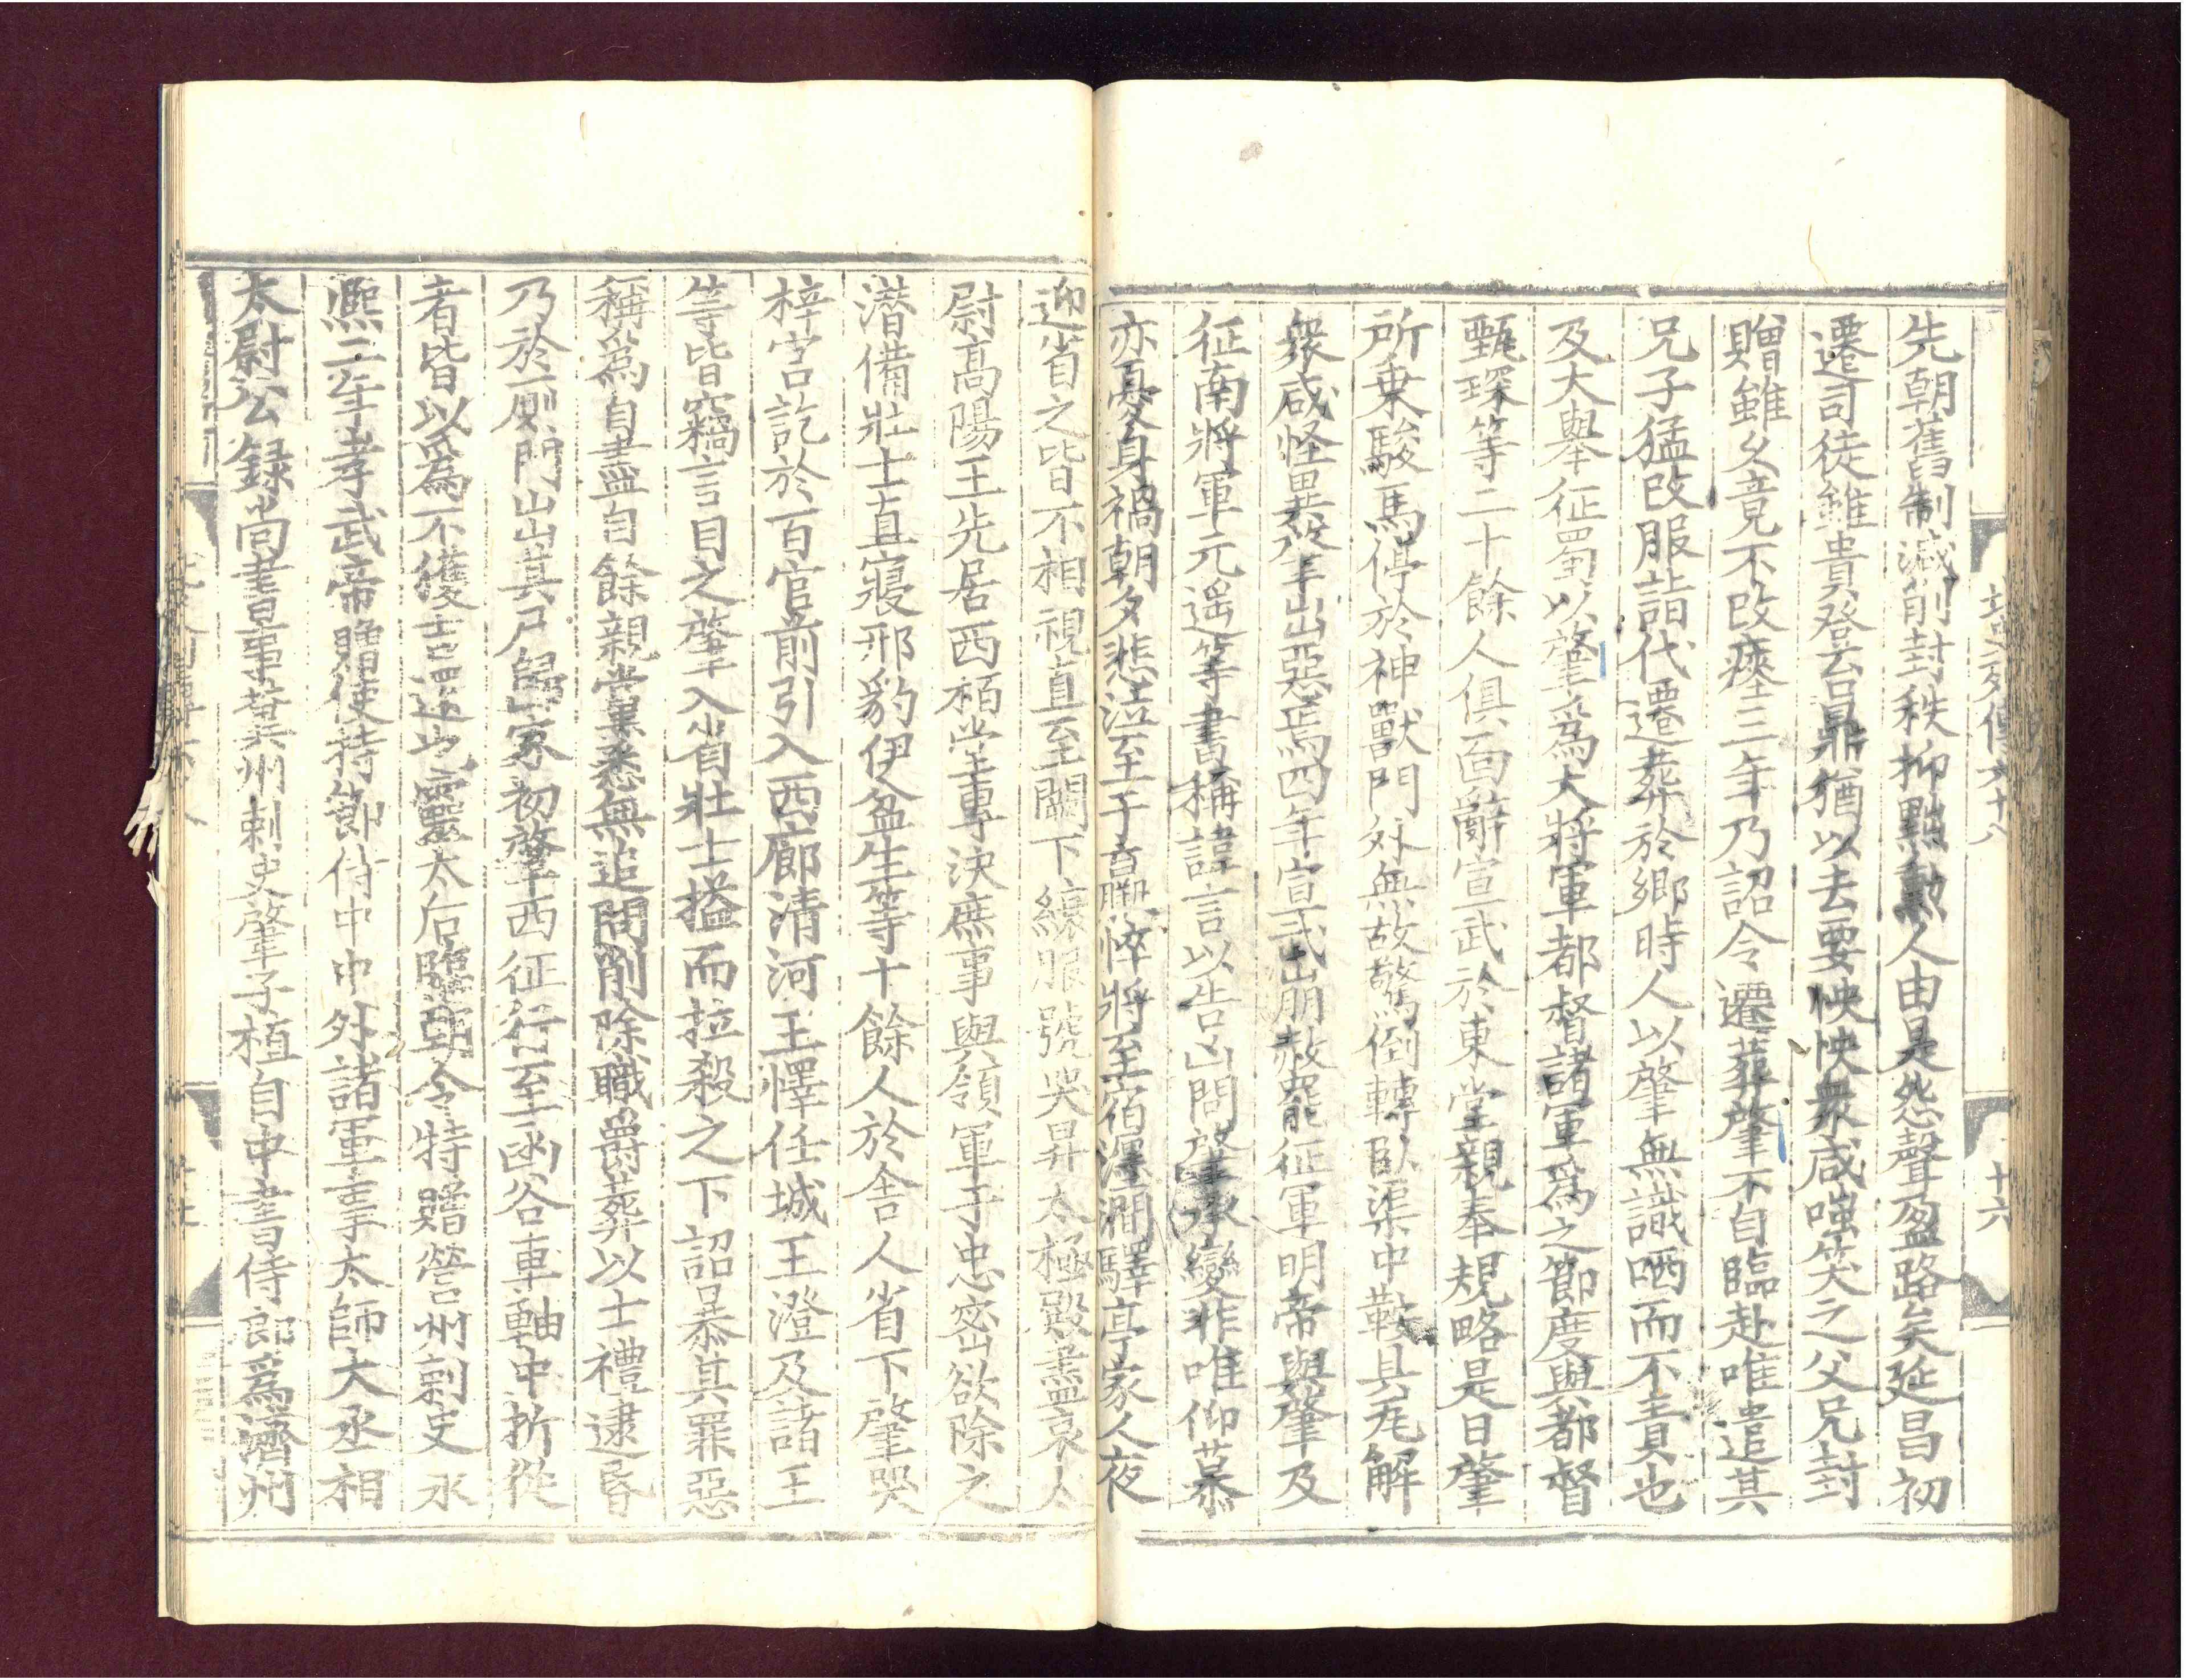 先朝舊制減削封秩抑黜勲人由是怨聲盈路矣延昌初
遷司徒雖貴登台鼎猶以去要怏怏衆咸嗤笑之父兄封
贈雖久竟不改瘞三年乃詔令遷葬肇不自臨赴唯遣其
兄子猛改服詣代遷葬於鄉時人以肇無識哂而不責也
及大舉征蜀以肇爲大將軍都督諸軍爲之節度與都督
甄琛等二十餘人俱面辭宣武於東堂親奉規略是日肇
所乗駿馬停於神獸門外無故驚倒轉臥渠中鞍具瓦解
衆咸怪異肇出惡焉四年宣武崩赦罷征軍明帝與肇及
征南將軍元遥等書稱諱言以告凶問肇承變非唯仰慕
亦憂身禍朝夕悲泣至于羸悴將至宿瀍澗驛亭家人夜
迎省之皆不相視直至闕下縗服號哭昇太極殿盡哀太
尉高陽王先居西栢堂專決庶事與領軍于忠密欲除之
潜備壯士直寢邢豹伊瓫生等十餘人於舍人省下肇哭
梓宮訖於百官前引入西廊清河王懌任城王澄及諸王
等皆竊言目之肇入省壯士搤而拉殺之下詔暴其罪惡
稱爲自盡自餘親黨悉無追問削除職爵葬以士禮逮昏
乃於厠門出其尸歸家初肇西征行至函谷車軸中折從
者皆以爲不獲吉還也靈太后臨朝令特贈營州刺史永
熈二年孝武帝贈使持節侍中中外諸軍事太師大丞相
太尉公録尚書事冀州刺史肇子植自中書侍郎爲濟州
列傳六十八
十六